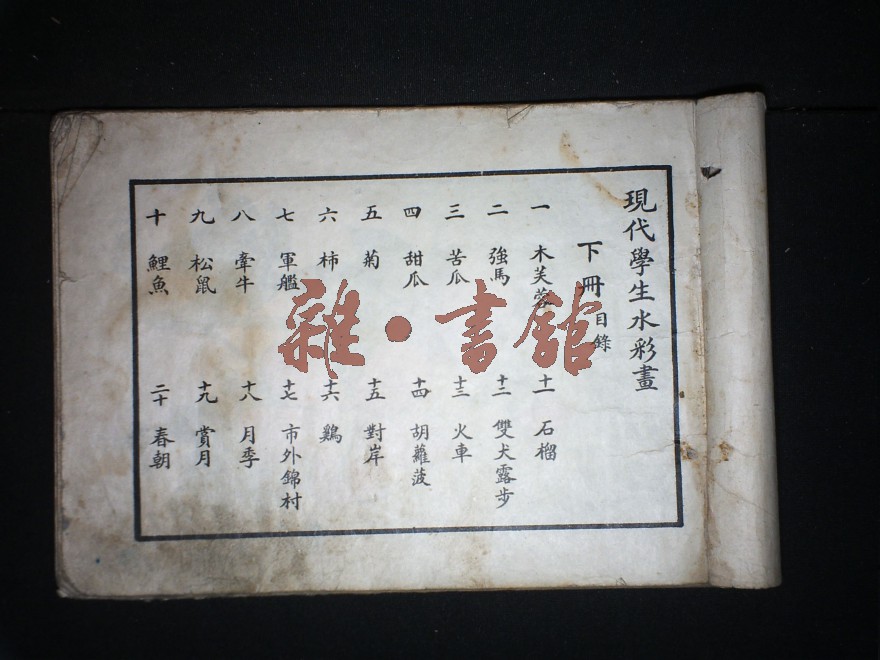 現代學生水彩畫
下冊目錄
一 木芙蓉
二 強馬
三 苦瓜
四 甜瓜
五 菊
六 柿
七 軍艦
八 牽牛
九 松鼠
十 鯉魚
十一 石榴
十二 雙犬露步
十三 火車
十四 胡蘿菠
十五 對岸
十六 鷄
十七 市外錦村
十八 月季
十九 賞月
二十 春朝
雜·書館